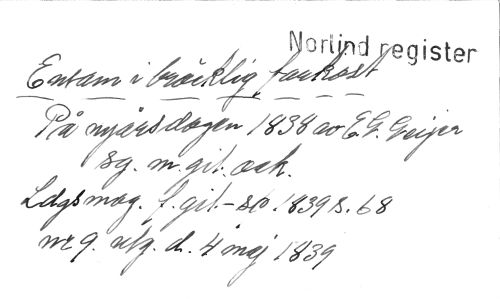 Norlind register
Ensam i bräcklig farkost
På nyårsdagen 1838 av E.G. Geijer
sg. m. git. ack.
Ldgsmag. f. git. – Sth. 1839 s. 68
nr 9. utg. d. 4 maj 1839